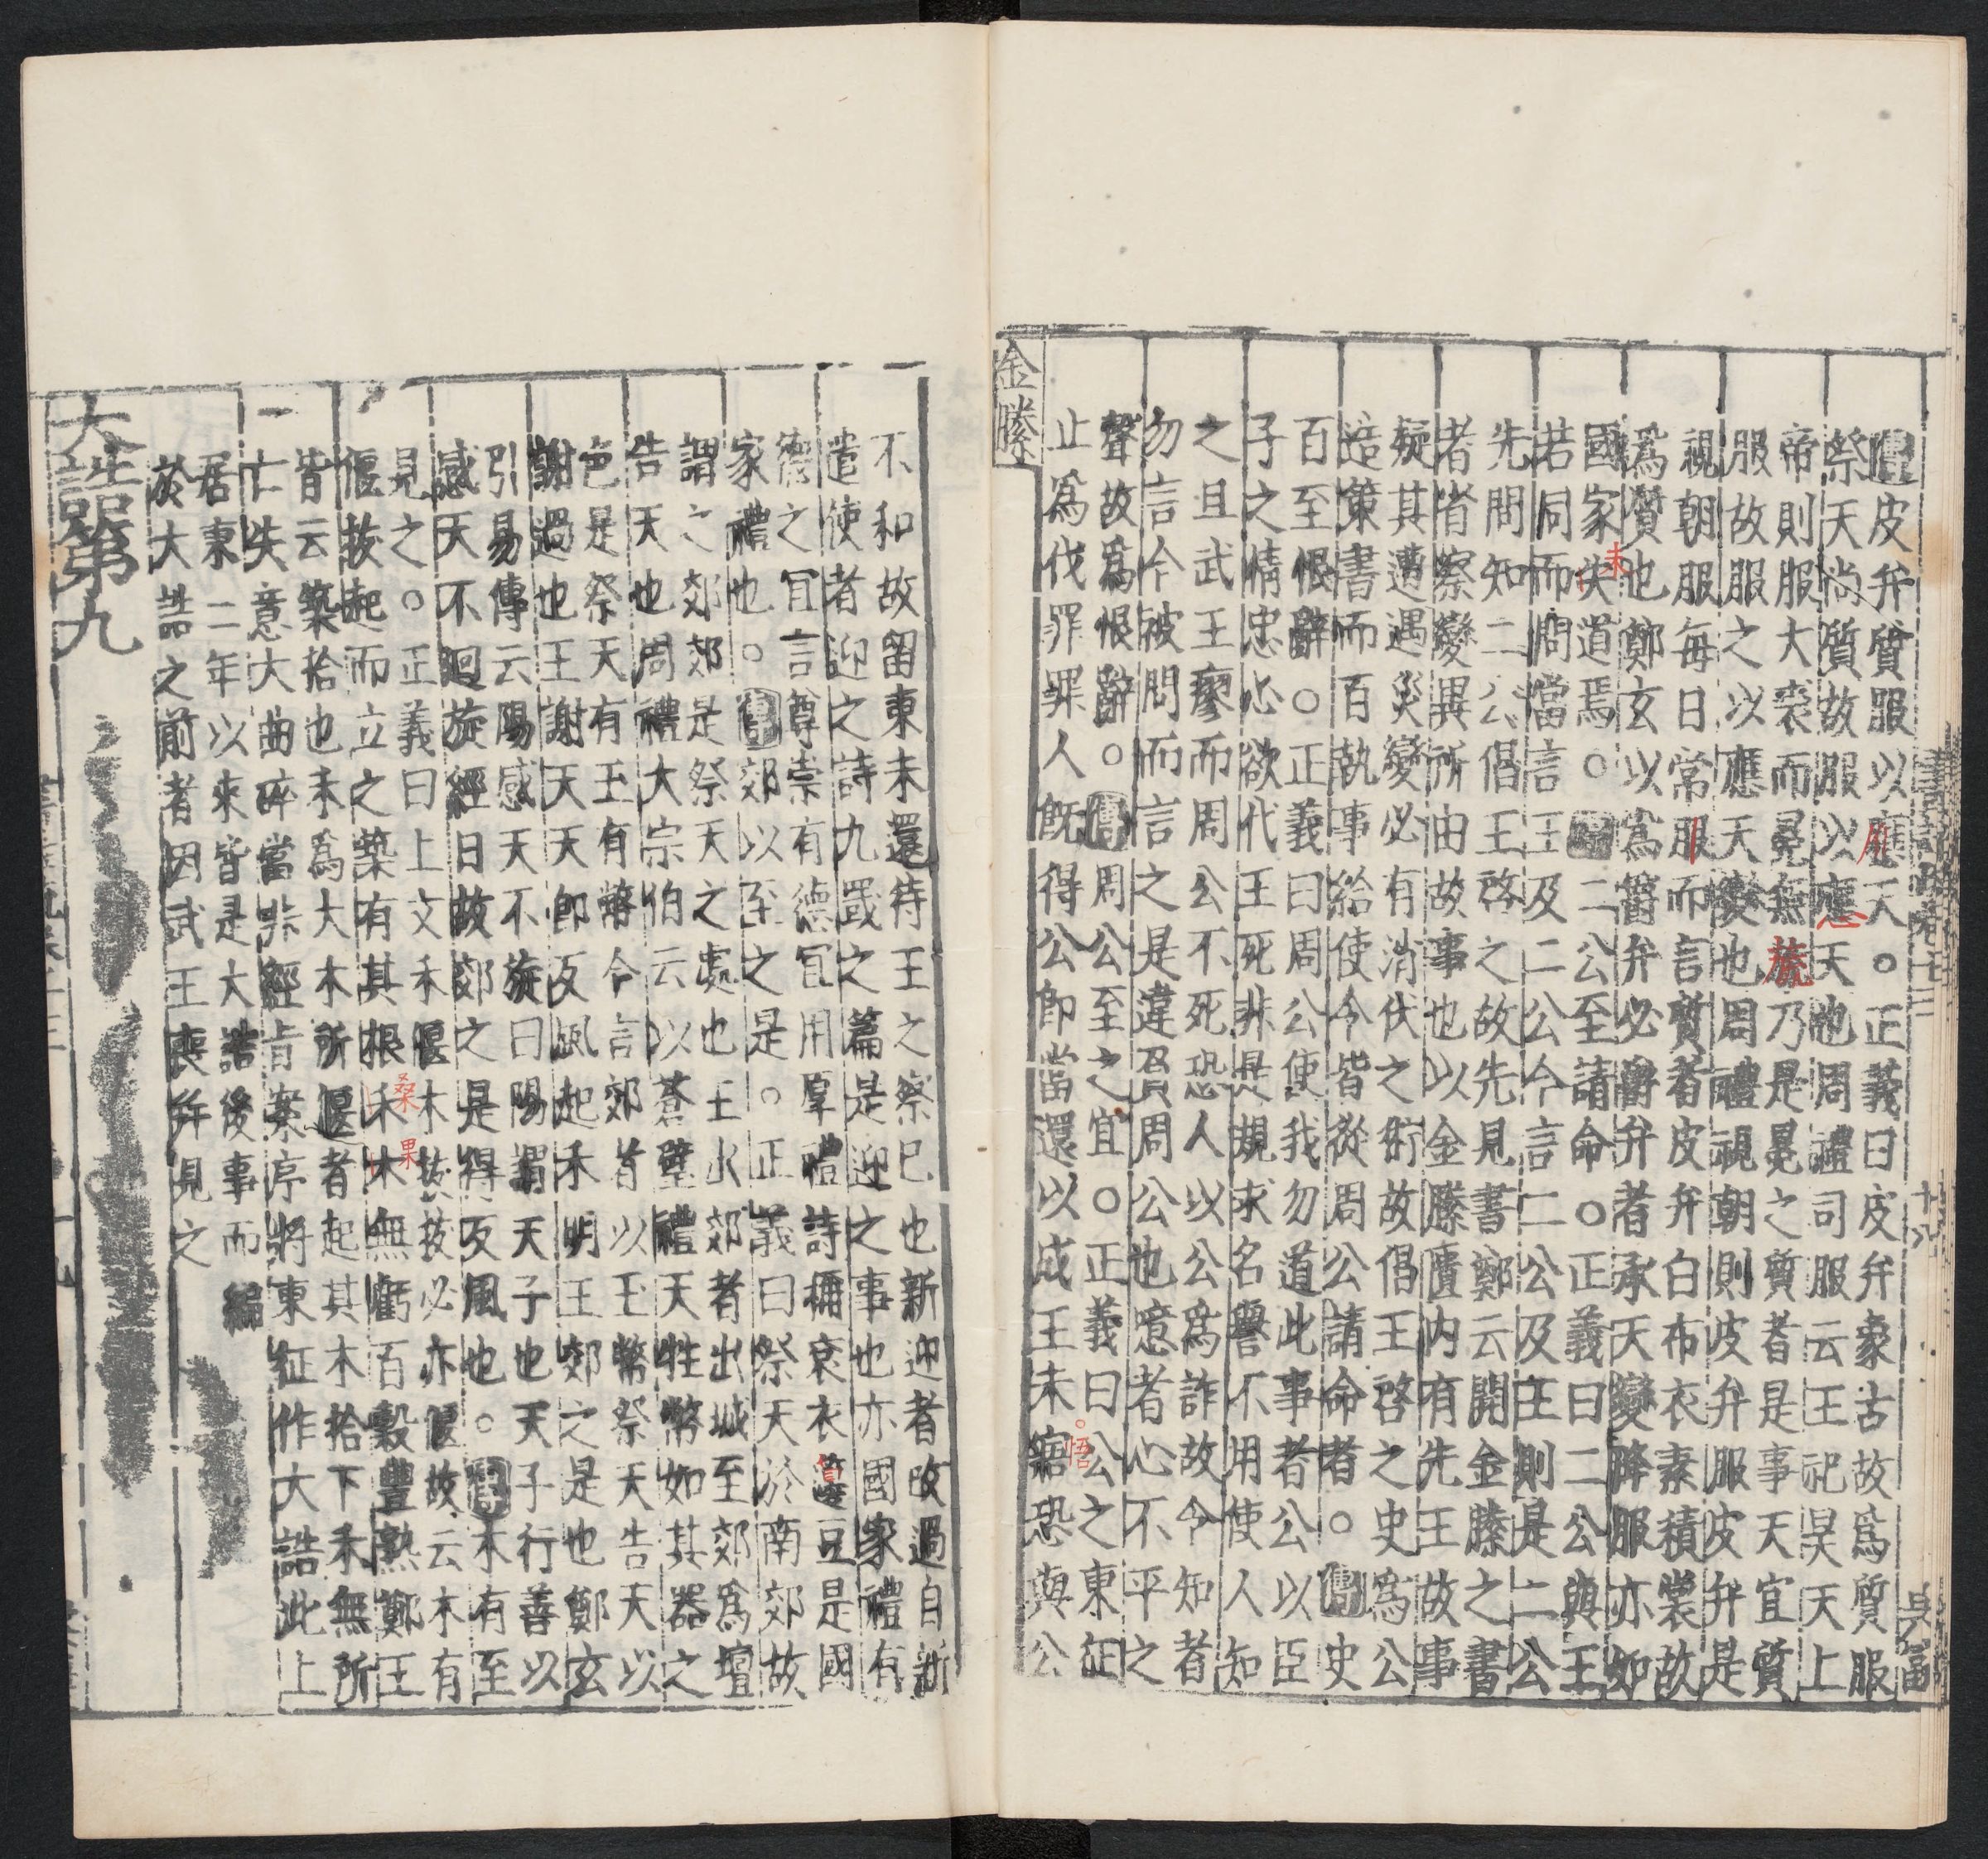 傳皮弁質服以應天○正義曰皮弁象古故爲質服
祭天尚質故服以應天也周禮司服云王祀昊天上
帝則服大裘而冕無旒乃是冕之質者是事天宜質
服故服之以應天變也周禮視朝則皮弁服皮弁是
視朝服每日常服而言質者皮弁白布衣素積裳故
爲質也鄭玄以爲爵弁必爵弁者承天變降服亦如
國家失道焉○傳二公至請命○正義曰二公與王
未
若同而問當言王及二公今言二公及王則是二公
先問知二公倡王啓之故先見書鄭云開金縢之書
者省察變異所由故事也以金縢匱內有先王故事
疑其遭遇災變必有消伏之術故倡王啓之史爲公
造策書而百執事給使今皆從周公請命者○傳史
百至恨辭○正義曰周公使我勿道此事者公以臣
子之情忠心欲代王死非是規求名譽不用使人知
之且武王瘳而周公不死恐人以公爲詐故令知者
勿言今被問而言之是違負周公也噫者心不平之
聲故爲恨辭○傳周公至之宜○正義曰公之東征
止爲伐罪罪人既得公即當還以成王未寤恐與公
悟
金縢
十八
吳富
不和故留東未還待王之察已也新迎者改過自新
遣使者迎之詩九罭之篇是迎之事也亦國家禮有
德之宜言尊崇有德宜用厚禮詩稱袞衣籩豆是國
家禮也○傳郊以至之是○正義曰祭天於南郊故
謂之郊郊是祭天之處也王出郊者出城至郊爲壇
告天也周禮大宗伯云以蒼璧禮天牲幣如其器之
色是祭天有玉有幣今言郊者以玉幣祭天告天以
謝過也王謝天天即反風起禾明王郊之是也鄭玄
引易傳云陽感天不旋日陽謂天子也天子行善以
感天不迴旋經日故郊之是得反風也○傳木有至
見之○正義曰上文禾偃木拔拔必亦偃故云木有
偃拔起而立之築有其根禾木無虧百穀豐熟鄭王
桑果
皆云築拾也禾爲大木所偃者起其木拾下禾無所
亡失意大曲碎當非經旨案序將東征作大誥此上
居東二年以來皆是大誥後事而編
於大誥之前者因武王喪并見之
大誥第九